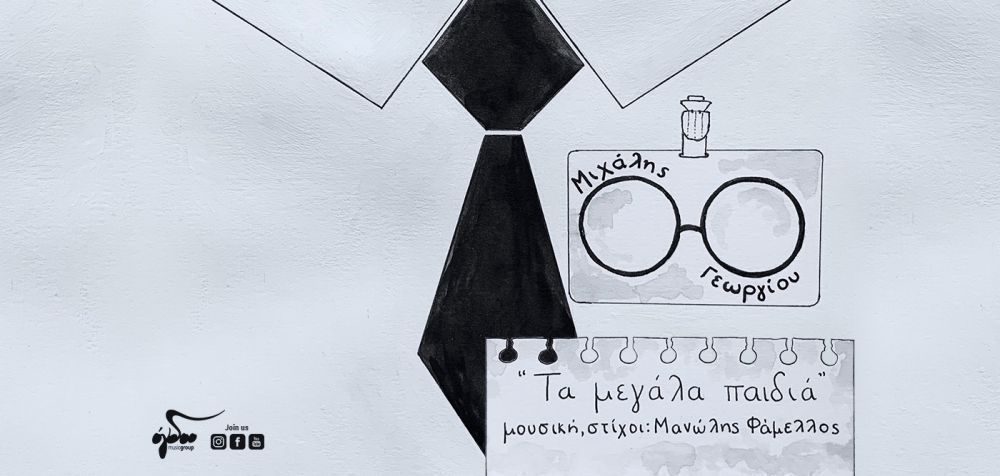 Μιχάλης
Γεωργίου
“Τα μεγάλα παιδιά”
μουσική, στίχοι: Μανώλης Φάμελλος
όγδοο
musicgroup
Join us
You
Tube